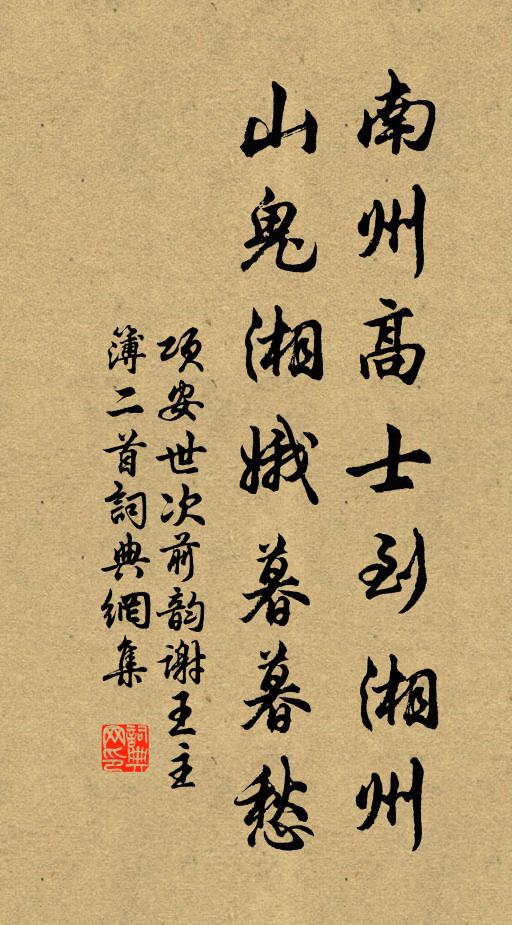 南州高士到湘州
山鬼湘娥暮暮愁
项安世次前韵謝王主
簿二首詞典網集
詞典网印